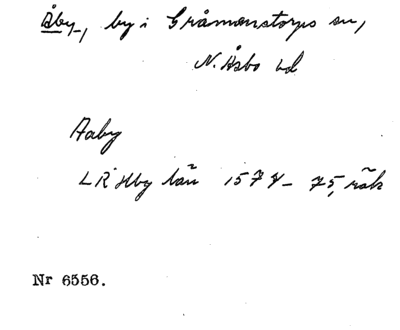 Åby, by i Gråmanstorps sn,
N. Åsbo hd
Aaby
LR Hbg län 1574-75, räk
Nr 6556.